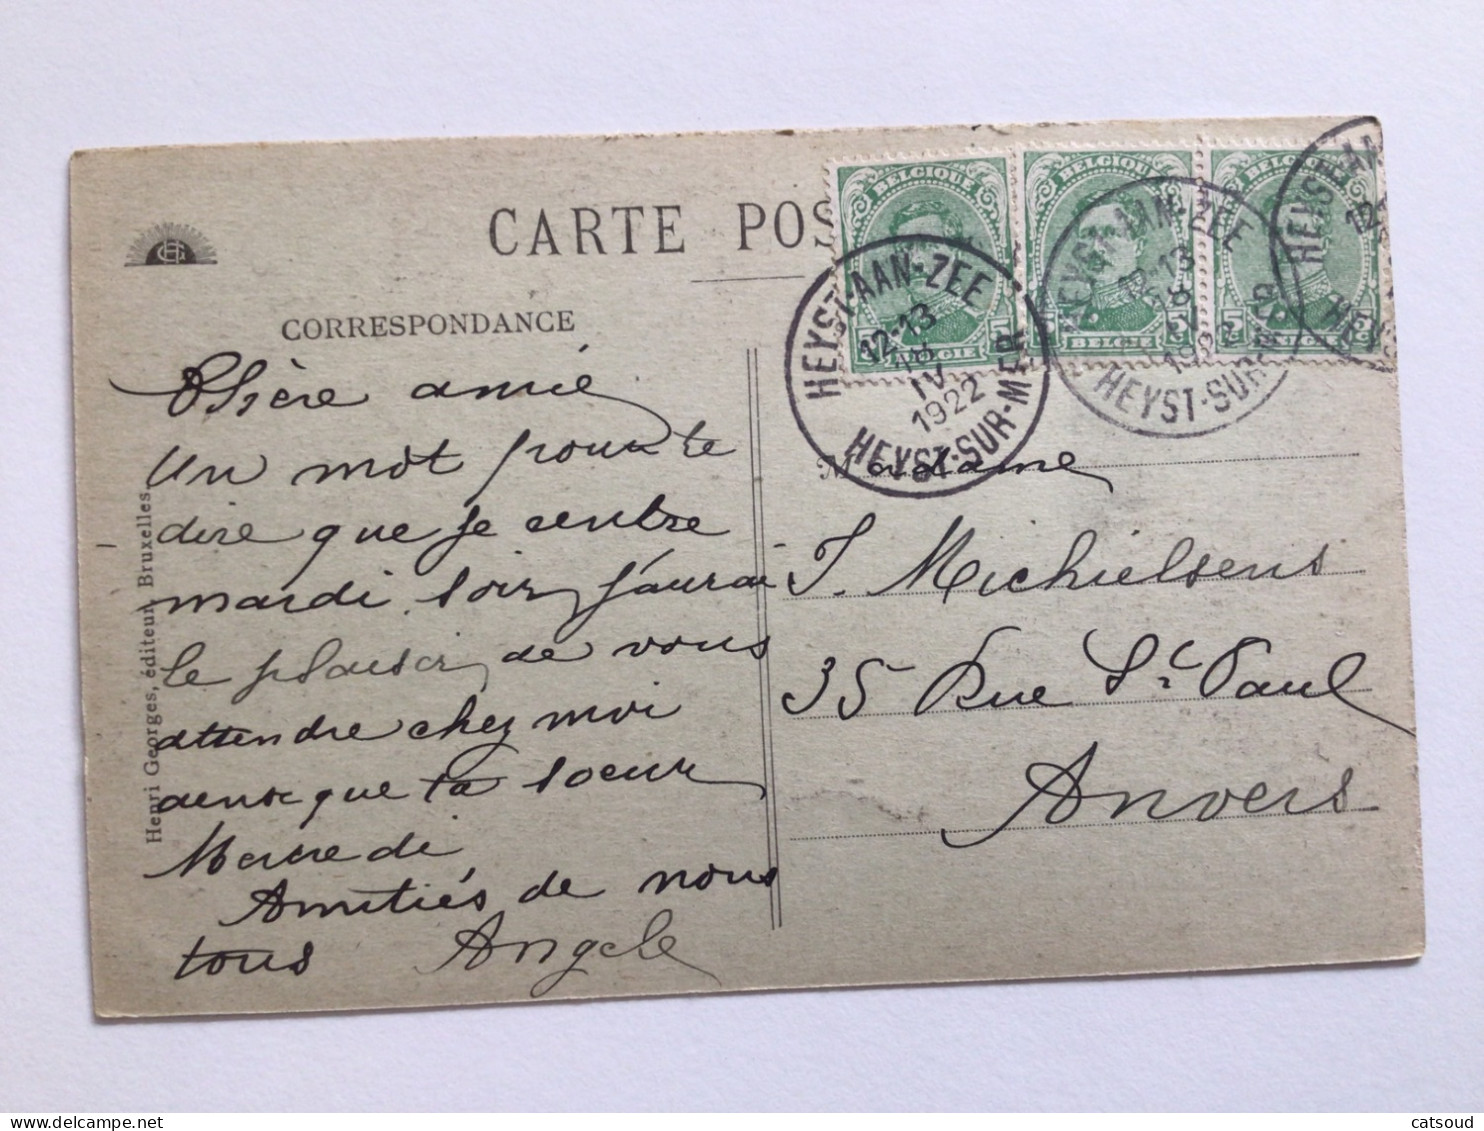 CARTE POS
CORRESPONDANCE
Chère amie
Un mot pour te
dire que je rentre
mardi soir j'aurai
le plaisir de vous
attendre chez moi
que ta soeur
Mercredi
Amitiés de nous
tous Angele
Henri Georges, éditeur, Bruxelles.
BELGIQUE
5
BELGIË
BELGIQUE
5 5
BELGIE
BELGIQUE
5 5
BELGIE
HEYST-AAN-ZEE
12-13
18
IV
1922
HEYST-SUR-MER
HEYST-AAN-ZEE
12-13
18
IV
1922
HEYST-SUR-MER
HEYST-AAN
12-
HEYS
Madame
J. Michielsens
35 Rue St Paul
Anvers
catsoud